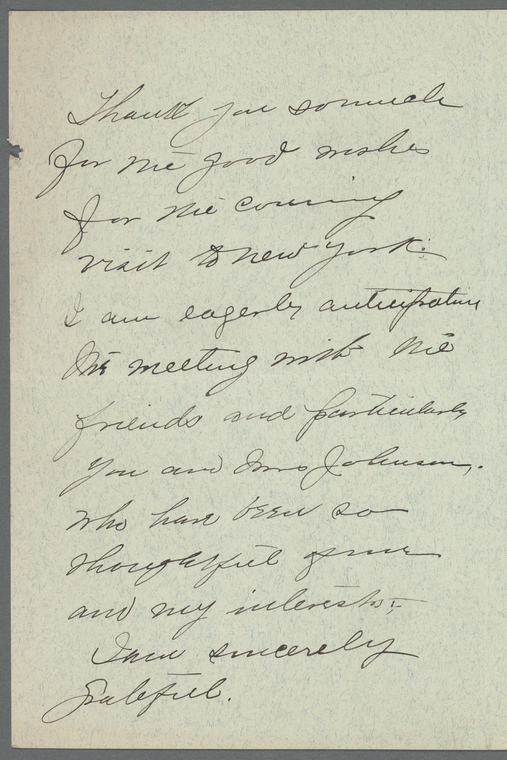 Thank you so much
for the good wishes
for the coming
visit to New York.
I am eagerly anticipating
the meeting with the
friends and particularly
you and Mrs Johnson,
who have been so
thoughtful of me
and my interests;
I am sincerely
grateful.